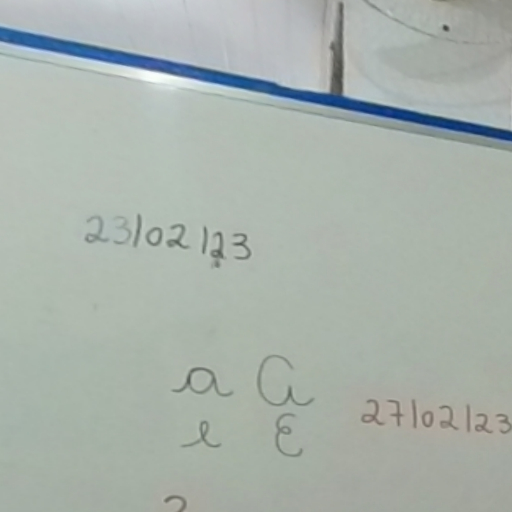 23/02/23
a A
e E 27/02/23